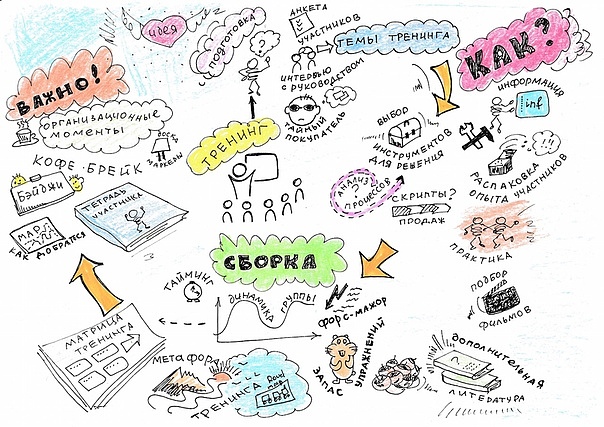 идея
подготовка
анкета
участников
темы тренинга
интервью
с руководством
тайный
покупатель
?
Как?
информация
inf
важно!
организационные
моменты
доска
маркеры
кофе-брейк
Бэйджи
тетрадь
участника
МАР
как добраться
тренинг
выбор
инструментов
для решения
анализ
?
процессов
скрипты?
продаж
распаковка
опыта участников
практика
подбор
фильмов
сборка
тайминг
динамика группы
форс-мажор
запас
упражнений
матрица
тренинга
метафора
тренинга
дополнительная
литература